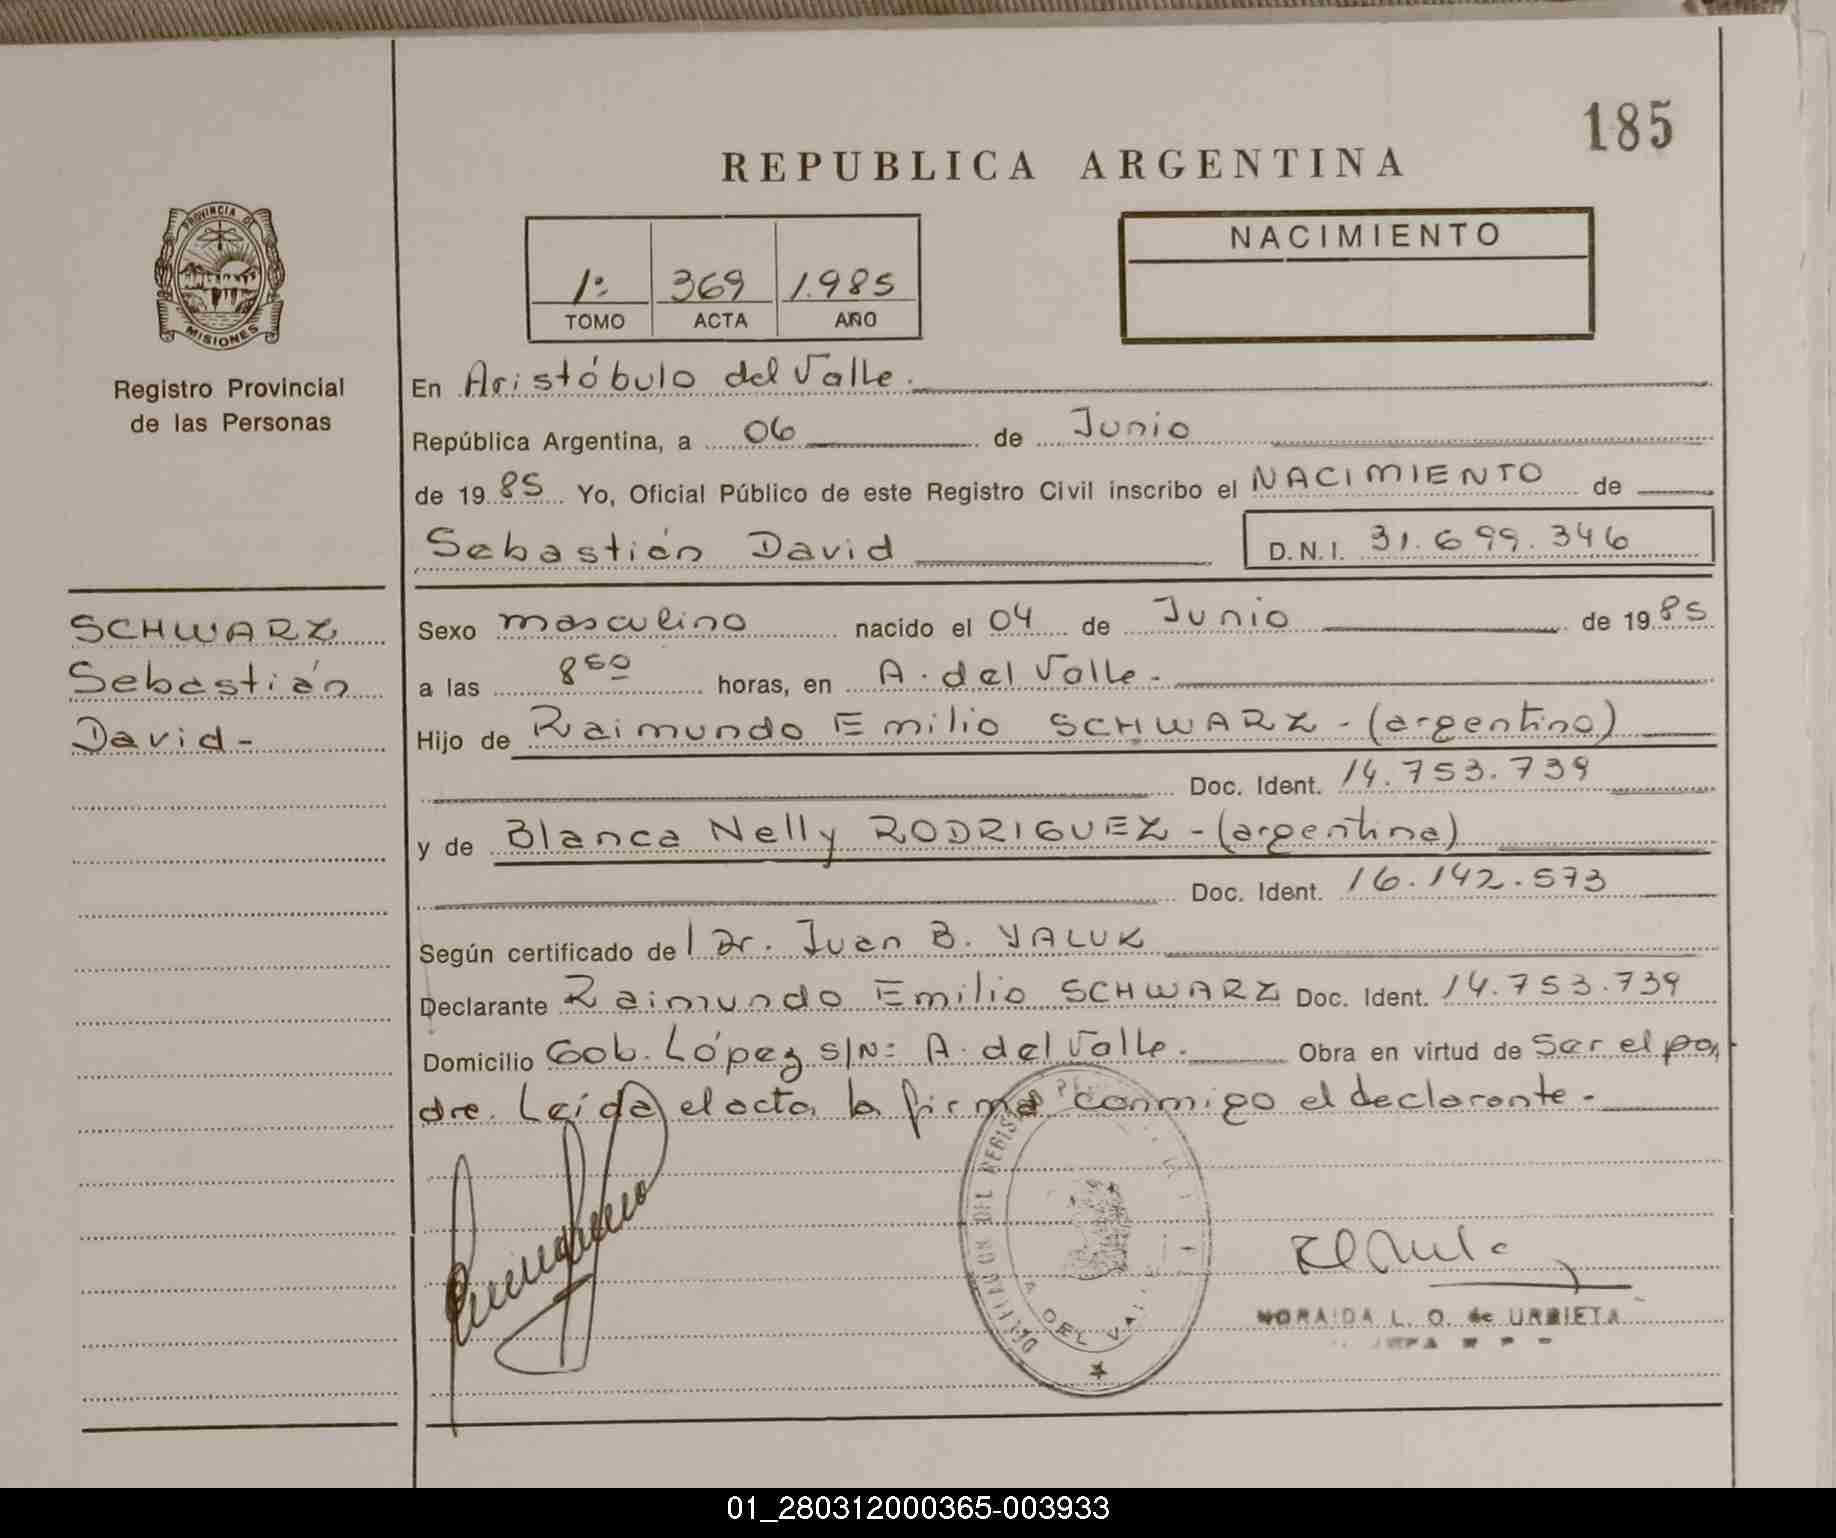 185
REPUBLICA ARGENTINA
PROVINCIA DE
MISIONES
Registro Provincial
de las Personas
1º 369 1.985
TOMO ACTA AÑO
NACIMIENTO
En Aristóbulo del Valle.
República Argentina, a 06 de Junio
de 1985 Yo, Oficial Público de este Registro Civil inscribo el NACIMIENTO de
Sebastián David D.N.I. 31.699.346
SCHWARZ
Sebastián
David-
Sexo masculino nacido el 04 de Junio de 1985
a las horas, en A. del Valle.-
Hijo de Raimundo Emilio SCHWARZ - (argentino)
Doc. Ident. 14.753.739
y de Blanca Nelly RODRIGUEZ - (argentina)
Doc. Ident. 16.142.573
Según certificado de l Dr. Juan B. YALUK
Declarante Raimundo Emilio SCHWARZ Doc. Ident. 14.753.739
Domicilio Gob. López S/Nº A. del Valle.- Obra en virtud de Ser el pa,
dre. Leída el acta la firma conmigo el declarante.-
DELEGACION DEL REGISTRO
A DEL VALLE
NORAIDA L. O. de URBIETA
01_280312000365-003933